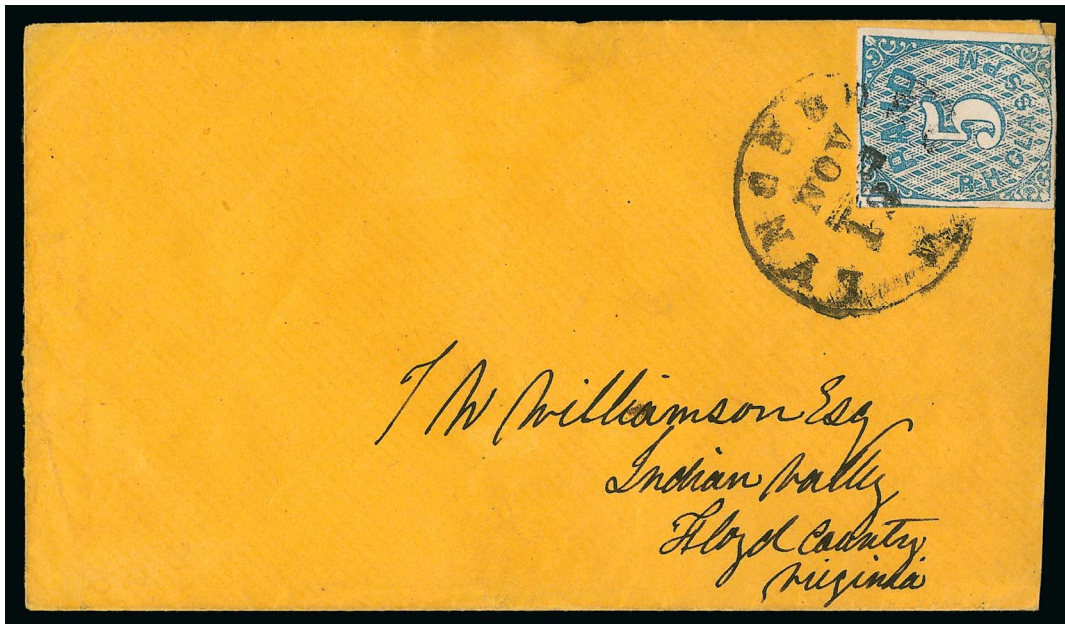 LYNCHBURG
NOV
1
PAID
5
R.H. GLASS P.M
T W Williamson Esq
Indian Valley
Floyd County
Virginia